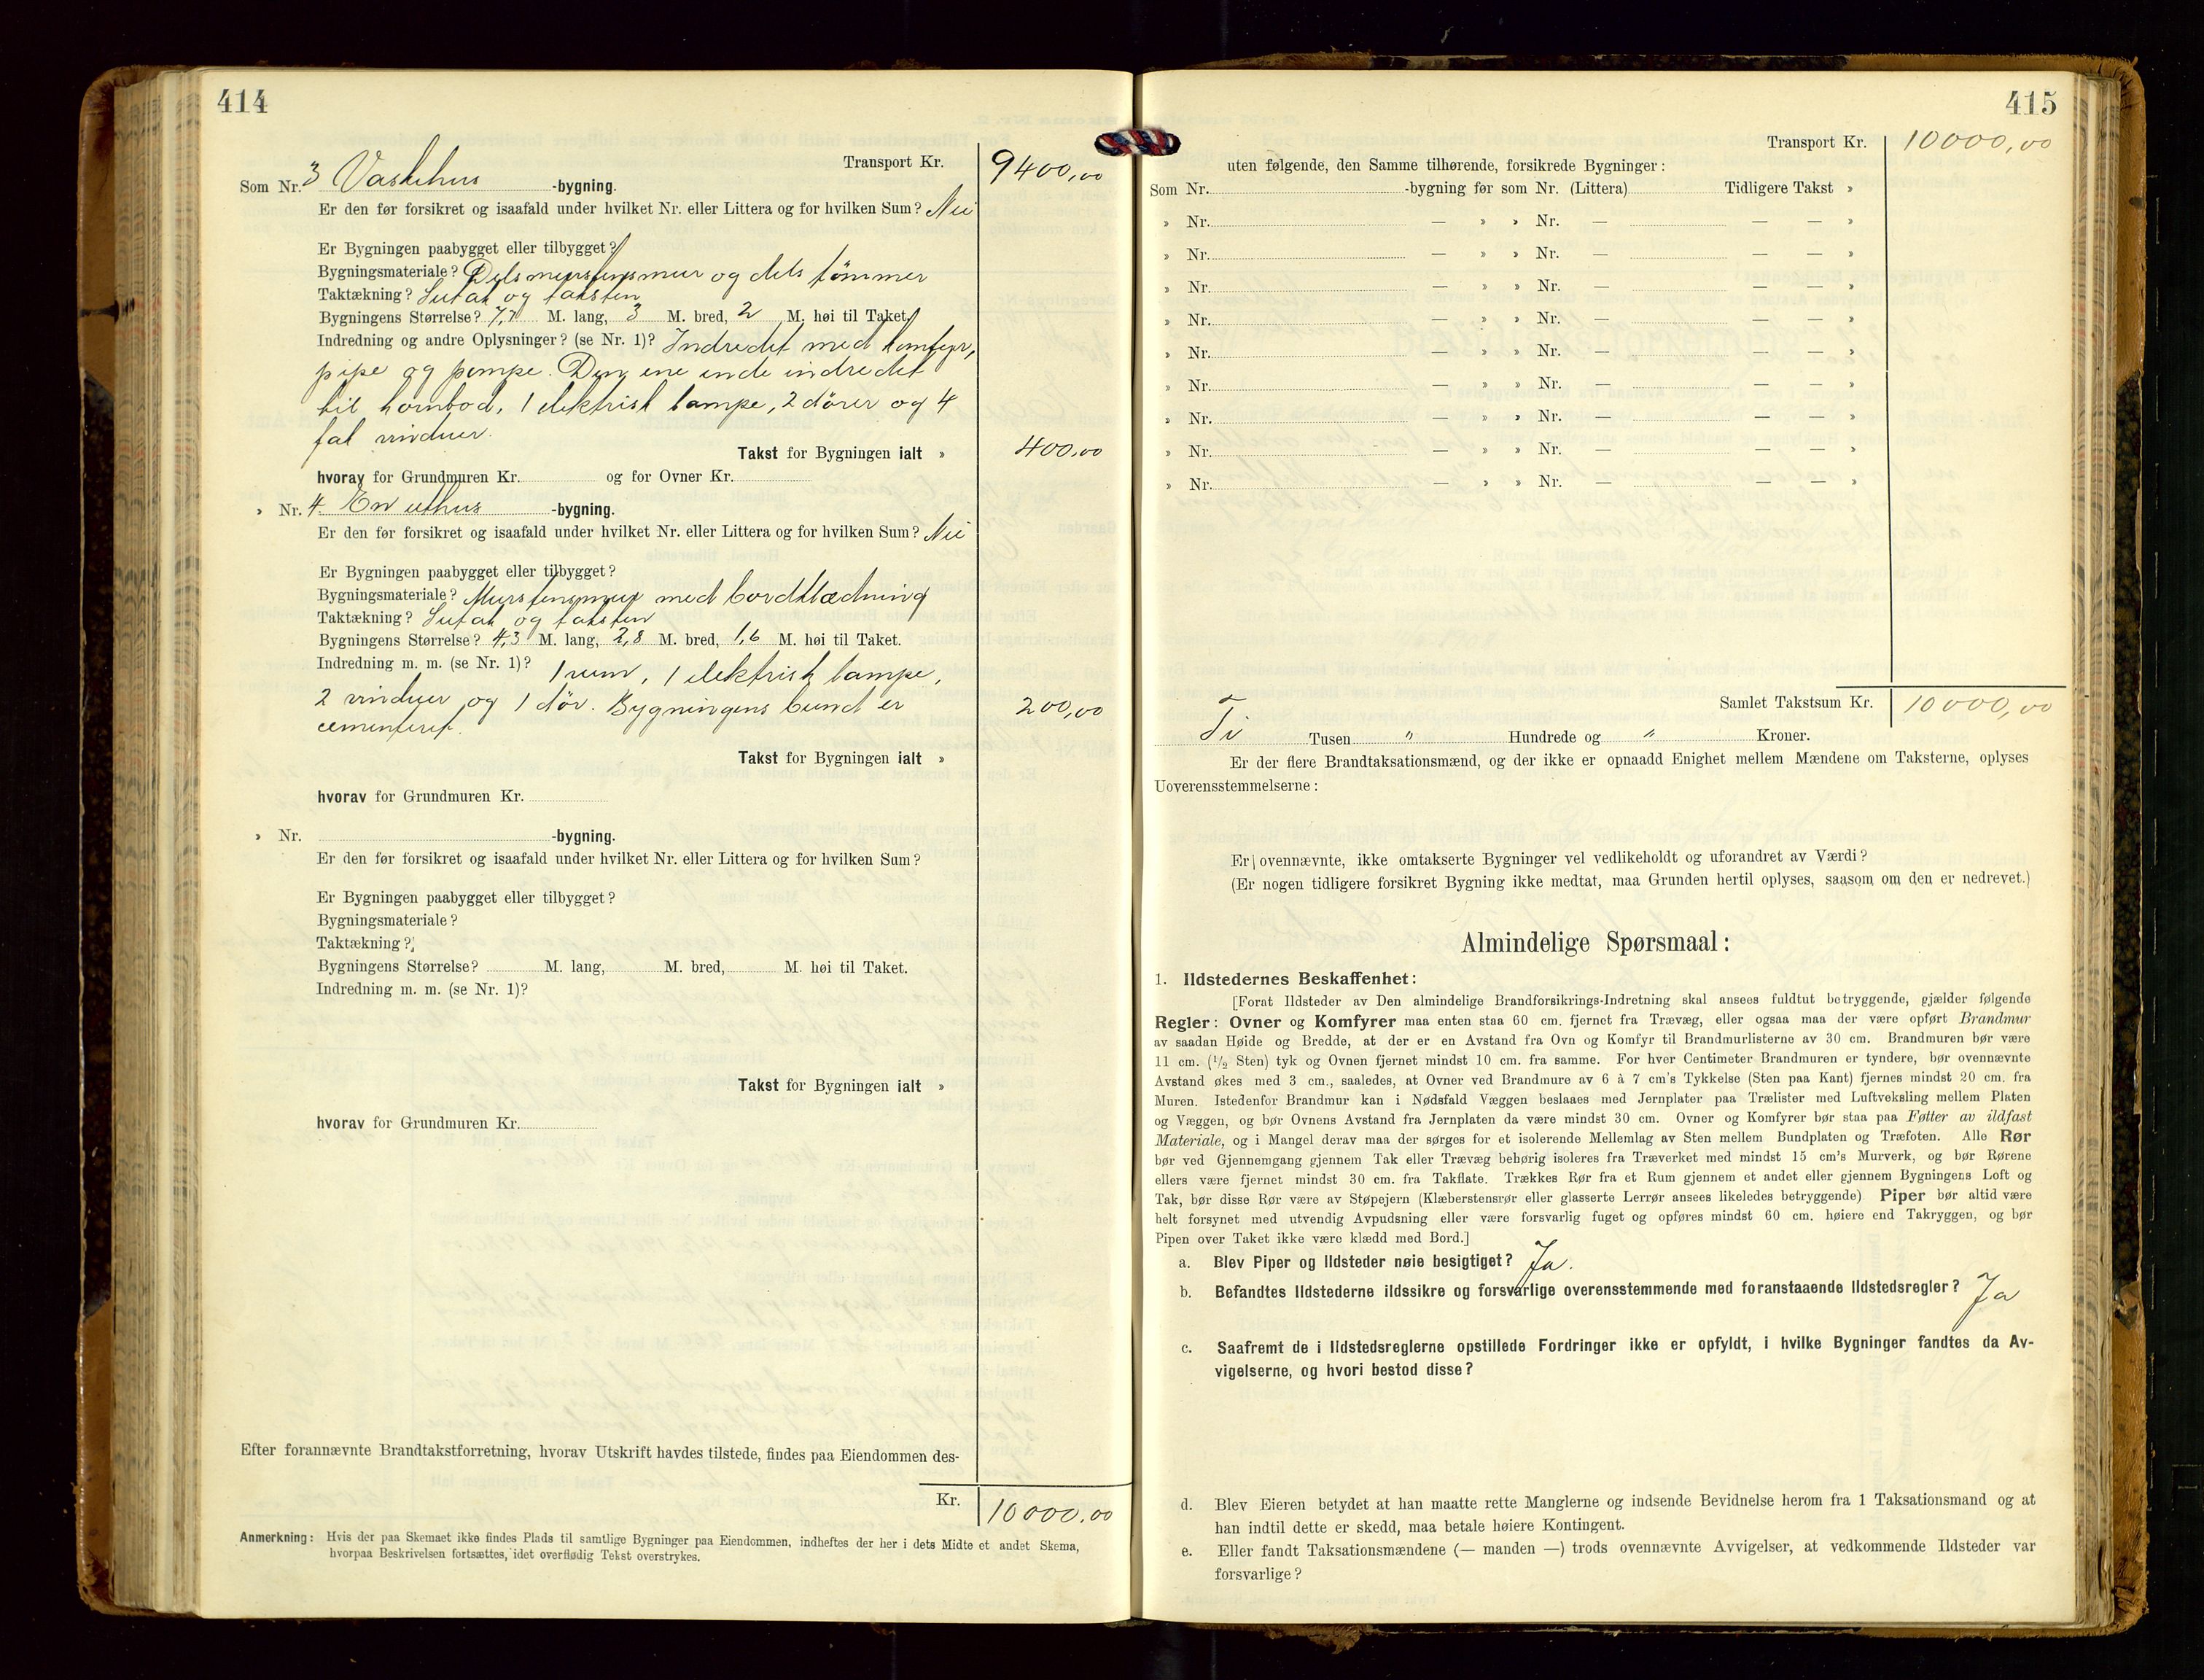 414
Transport Kr. 9400,00
Som Nr. 3 Vaskehus -bygning.
Er den før forsikret og isaafald under hvilket Nr. eller Littera og for hvilken Sum? Nei
Er Bygningen paabygget eller tilbygget?
Bygningsmateriale? Dels murstensmur og dels tömmer
Taktækning? Sutak og taksten
Bygningens Størrelse? 7,7 M. lang, 3 M. bred, 2 M. høi til Taket.
Indredning og andre Oplysninger? (se Nr. 1)? Indredet med komfyr,
pipe og pompe. Den ene ende indredet
til kornbod, 1 elektrisk lampe, 2 dører og 4
fal vinduer.
Takst for Bygningen ialt » 400,00
hvorav for Grundmuren Kr. og for Ovner Kr.
» Nr. 4 En uthus -bygning.
Er den før forsikret og isaafald under hvilket Nr. eller Littera og for hvilken Sum? Nei
Er Bygningen paabygget eller tilbygget?
Bygningsmateriale? Murstensmur med bordklædning
Taktækning? Sutak og taksten
Bygningens Størrelse? 4,3 M. lang, 2,8 M. bred, 1,6 M. høi til Taket.
Indredning m. m. (se Nr. 1)? 1 rum, 1 elektrisk lampe,
2 vinduer og 1 dør. Bygningens bund er 200,00
cementeret.
Takst for Bygningen ialt »
hvorav for Grundmuren Kr.
» Nr. -bygning.
Er den før forsikret og isaafald under hvilket Nr. eller Littera og for hvilken Sum?
Er Bygningen paabygget eller tilbygget?
Bygningsmateriale?
Taktækning?
Bygningens Størrelse? M. lang, M. bred, M. høi til Taket.
Indredning m. m. (se Nr. 1)?
Takst for Bygningen ialt »
hvorav for Grundmuren Kr.
Efter forannævnte Brandtakstforretning, hvorav Utskrift havdes tilstede, findes paa Eiendommen des-
Kr. 10000,00
Anmerkning: Hvis der paa Skemaet ikke findes Plads til samtlige Bygninger paa Eiendommen, indheftes der her i dets Midte et andet Skema,
hvorpaa Beskrivelsen fortsættes, idet overflødig Tekst overstrykes.
415
Transport Kr. 10000,00
uten følgende, den Samme tilhørende, forsikrede Bygninger:
Som Nr. -bygning før som Nr. (Littera) Tidligere Takst »
» Nr. — » » Nr. — — — »
» Nr. — » » Nr. — — — »
» Nr. — » » Nr. — — — »
» Nr. — » » Nr. — — — »
» Nr. — » » Nr. — — — »
» Nr. — » » Nr. — — — »
» Nr. — » » Nr. — — — »
» Nr. — » » Nr. — — — »
» Nr. — » » Nr. — — — »
Samlet Takstsum Kr. 10000,00
Ti Tusen " Hundrede og " Kroner.
Er der flere Brandtaksationsmænd, og der ikke er opnaadd Enighet mellem Mændene om Taksterne, oplyses
Uoverensstemmelserne:
Er ovennævnte, ikke omtakserte Bygninger vel vedlikeholdt og uforandret av Værdi?
(Er nogen tidligere forsikret Bygning ikke medtat, maa Grunden hertil oplyses, saasom om den er nedrevet.)
Almindelige Spørsmaal:
1. Ildstedernes Beskaffenhet:
[Forat Ildsteder av Den almindelige Brandforsikrings-Indretning skal ansees fuldtut betryggende, gjælder følgende
Regler: Ovner og Komfyrer maa enten staa 60 cm. fjernet fra Trævæg, eller ogsaa maa der være opført Brandmur
av saadan Høide og Bredde, at der er en Avstand fra Ovn og Komfyr til Brandmurlisterne av 30 cm. Brandmuren bør være
11 cm. (1/2 Sten) tyk og Ovnen fjernet mindst 10 cm. fra samme. For hver Centimeter Brandmuren er tyndere, bør ovennævnte
Avstand økes med 3 cm., saaledes, at Ovner ved Brandmure av 6 à 7 cm's Tykkelse (Sten paa Kant) fjernes mindst 20 cm. fra
Muren. Istedenfor Brandmur kan i Nødsfald Væggen beslaaes med Jernplater paa Trælister med Luftveksling mellem Platen
og Væggen, og bør Ovnens Avstand fra Jernplaten da være mindst 30 cm. Ovner og Komfyrer bør staa paa Føtter av ildfast
Materiale, og i Mangel derav maa der sørges for et isolerende Mellemlag av Sten mellem Bundplaten og Træfoten. Alle Rør
bør ved Gjennemgang gjennem Tak eller Trævæg behørig isoleres fra Træverket med mindst 15 cm's Murverk, og bør Rørene
ellers være fjernet mindst 30 cm. fra Takflate. Trækkes Rør fra et Rum gjennem et andet eller gjennem Bygningens Loft og
Tak, bør disse Rør være av Støpejern (Klæberstensrør eller glasserte Lerrør ansees likeledes betryggende) Piper bør altid være
helt forsynet med utvendig Avpudsning eller være forsvarlig fuget og opføres mindst 60 cm. høiere end Takryggen, og bør
Pipen over Taket ikke være klædd med Bord.]
a. Blev Piper og Ildsteder nøie besigtiget? Ja.
b. Befandtes Ildstederne ildssikre og forsvarlige overensstemmende med foranstaaende Ildstedsregler? Ja
c. Saafremt de i Ildstedsreglerne opstillede Fordringer ikke er opfyldt, i hvilke Bygninger fandtes da Av-
vigelserne, og hvori bestod disse?
d. Blev Eieren betydet at han maatte rette Manglerne og indsende Bevidnelse herom fra 1 Taksationsmand og at
han indtil dette er skedd, maa betale høiere Kontingent.
e. Eller fandt Taksationsmændene (— manden —) trods ovennævnte Avvigelser, at vedkommende Ildsteder var
forsvarlige?